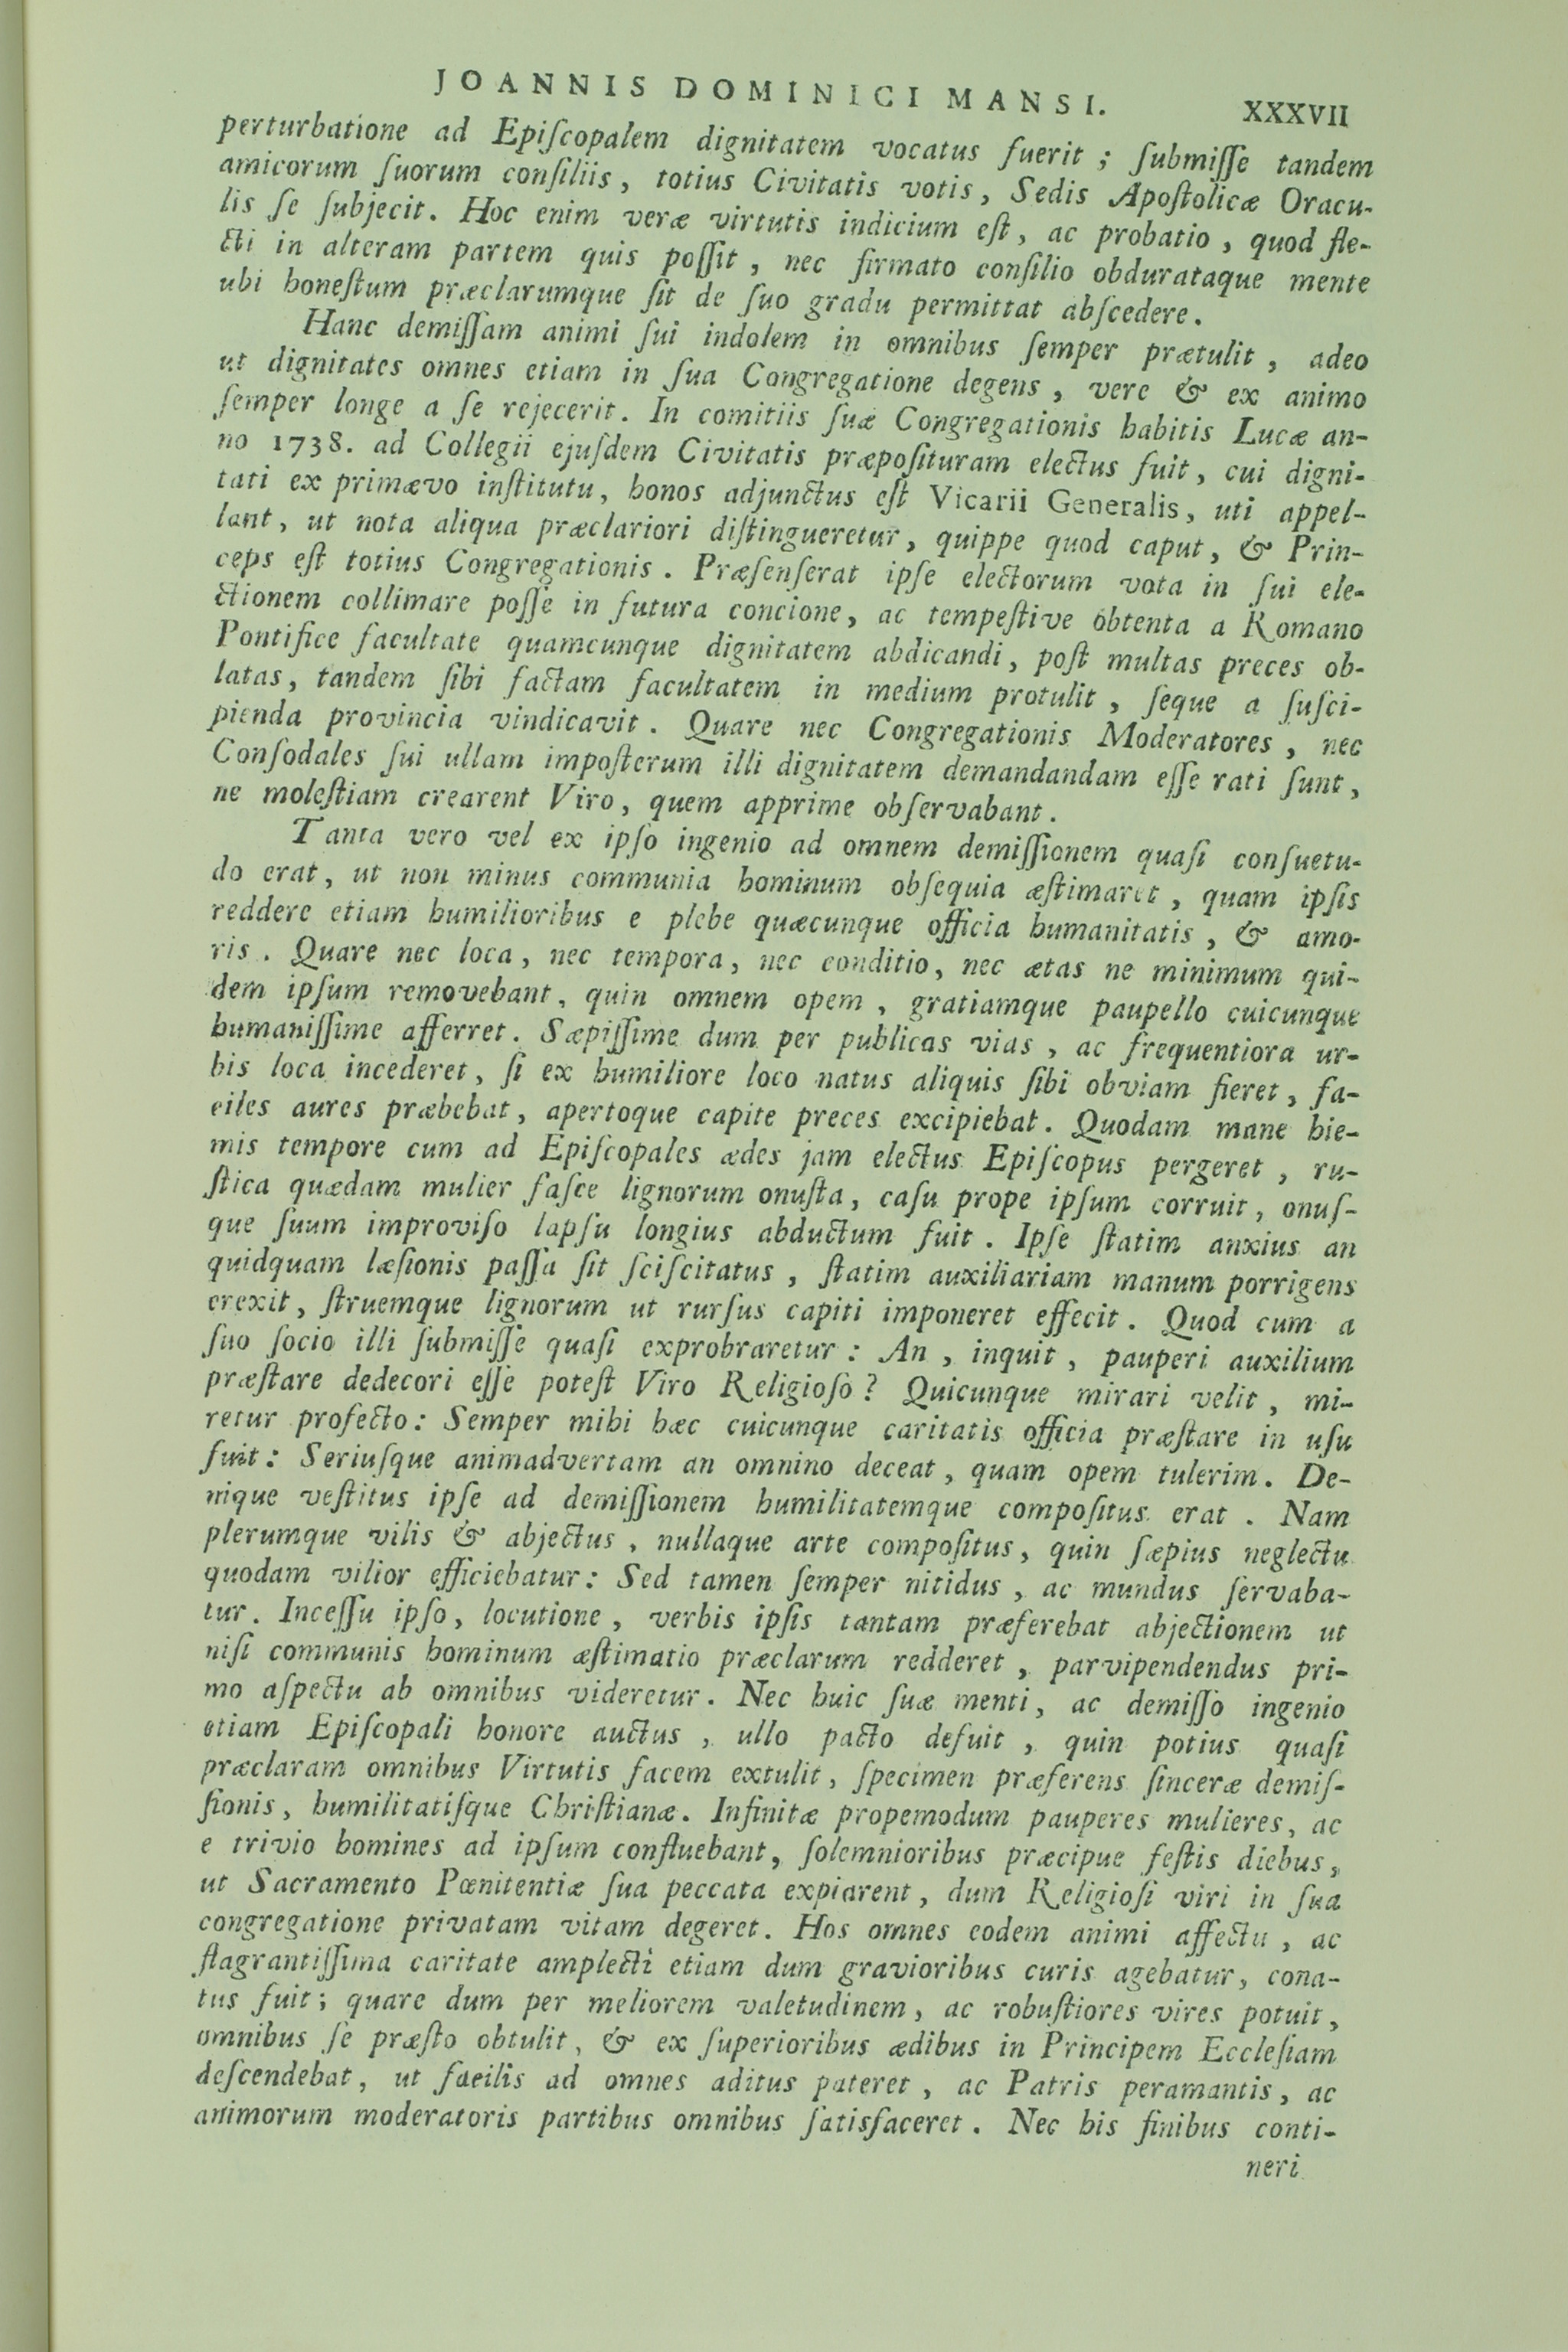 JOANNIS DOMINICI MANSI. XXXVII
perturbatione ad Epiſcopalem dignitatem vocatus fuerit ; ſubmiſſe tandem
amicorum ſuorum conſiliis, totius Civitatis votis, Sedis Apoſtolicæ Oracu-
lis ſe ſubjecit. Hoc enim veræ virtutis indicium eſt, ac probatio, quod fle-
cti in alteram partem quis poſſit, nec firmato conſilio obdurataque mente
ubi honeſtum præclarumque ſit de ſuo gradu permittat abſcedere.
Hanc demiſſam animi ſui indolem in omnibus ſemper prætulit, adeo
ut dignitates omnes etiam in ſua Congregatione degens, vere & ex animo
ſemper longe a ſe rejecerit. In comitiis ſuæ Congregationis habitis Lucæ an-
no 1738. ad Collegii ejuſdem Civitatis præpoſituram electus fuit, cui digni-
tati ex primævo inſtitutu, honos adjunctus eſt Vicarii Generalis, uti appel-
lant, ut nota aliqua præclariori diſtingueretur, quippe quod caput, & Prin-
ceps eſt totius Congregationis. Præſenſerat ipſe electorum vota in ſui ele-
ctionem collimare poſſe in futura concione, ac tempeſtive obtenta a Romano
Pontifice facultate quamcunque dignitatem abdicandi, poſt multas preces ob-
latas, tandem ſibi factam facultatem in medium protulit, ſeque a ſuſci-
pienda provincia vindicavit. Quare nec Congregationis Moderatores, nec
Conſodales ſui ullam impoſterum illi dignitatem demandandam eſſe rati ſunt,
ne moleſtiam crearent Viro, quem apprime obſervabant.
Tanta vero vel ex ipſo ingenio ad omnem demiſſionem quaſi conſuetu-
do erat, ut non minus communia hominum obſequia æſtimaret, quam ipſis
reddere etiam humilioribus e plebe quæcunque officia humanitatis, & amo-
ris. Quare nec loca, nec tempora, nec conditio, nec ætas ne minimum qui-
dem ipſum removebant, quin omnem opem, gratiamque paupello cuicunque
humaniſſime afferret. Sæpiſſime dum per publicas vias, ac frequentiora ur-
bis loca incederet, ſi ex humiliore loco natus aliquis ſibi obviam fieret, fa-
ciles aures præbebat, apertoque capite preces excipiebat. Quodam mane hie-
mis tempore cum ad Epiſcopales ædes jam electus Epiſcopus pergeret, ru-
ſtica quædam mulier faſce lignorum onuſta, caſu prope ipſum corruit, onuſ-
que ſuum improviſo lapſu longius abductum fuit. Ipſe ſtatim anxius an
quidquam læſionis paſſa ſit ſciſcitatus, ſtatim auxiliariam manum porrigens
erexit, ſtruemque lignorum ut rurſus capiti imponeret effecit. Quod cum a
ſuo ſocio illi ſubmiſſe quaſi exprobraretur : An, inquit, pauperi auxilium
præſtare dedecori eſſe poteſt Viro Religioſo? Quicunque mirari velit, mi-
retur profecto: Semper mihi hæc cuicunque caritatis officia præſtare in uſu
fuit: Seriuſque animadvertam an omnino deceat, quam opem tulerim. De-
nique veſtitus ipſe ad demiſſionem humilitatemque compoſitus erat. Nam
plerumque vilis & abjectus, nullaque arte compoſitus, quin ſæpius neglectu
quodam vilior efficiebatur: Sed tamen ſemper nitidus, ac mundus ſervaba-
tur. Inceſſu ipſo, locutione, verbis ipſis tantam præferebat abjectionem ut
niſi communis hominum æſtimatio præclarum redderet, parvipendendus pri-
mo aſpectu ab omnibus videretur. Nec huic ſuæ menti, ac demiſſo ingenio
etiam Epiſcopali honore auctus, ullo pacto defuit, quin potius quaſi
præclaram omnibus Virtutis facem extulit, ſpecimen præferens ſinceræ demiſ-
ſionis, humilitatiſque Chriſtianæ. Infinitæ propemodum pauperes mulieres, ac
e trivio homines ad ipſum confluebant, ſolemnioribus præcipue feſtis diebus,
ut Sacramento Pœnitentiæ ſua peccata expiarent, dum Religioſi viri in ſua
congregatione privatam vitam degeret. Hos omnes eodem animi affectu, ac
flagrantiſſima caritate amplecti etiam dum gravioribus curis agebatur, cona-
tus fuit; quare dum per meliorem valetudinem, ac robuſtiores vires potuit,
omnibus ſe præſto obtulit, & ex ſuperioribus ædibus in Principem Eccleſiam
deſcendebat, ut facilis ad omnes aditus pateret, ac Patris peramantis, ac
animorum moderatoris partibus omnibus ſatisfaceret. Nec his finibus conti-
neri